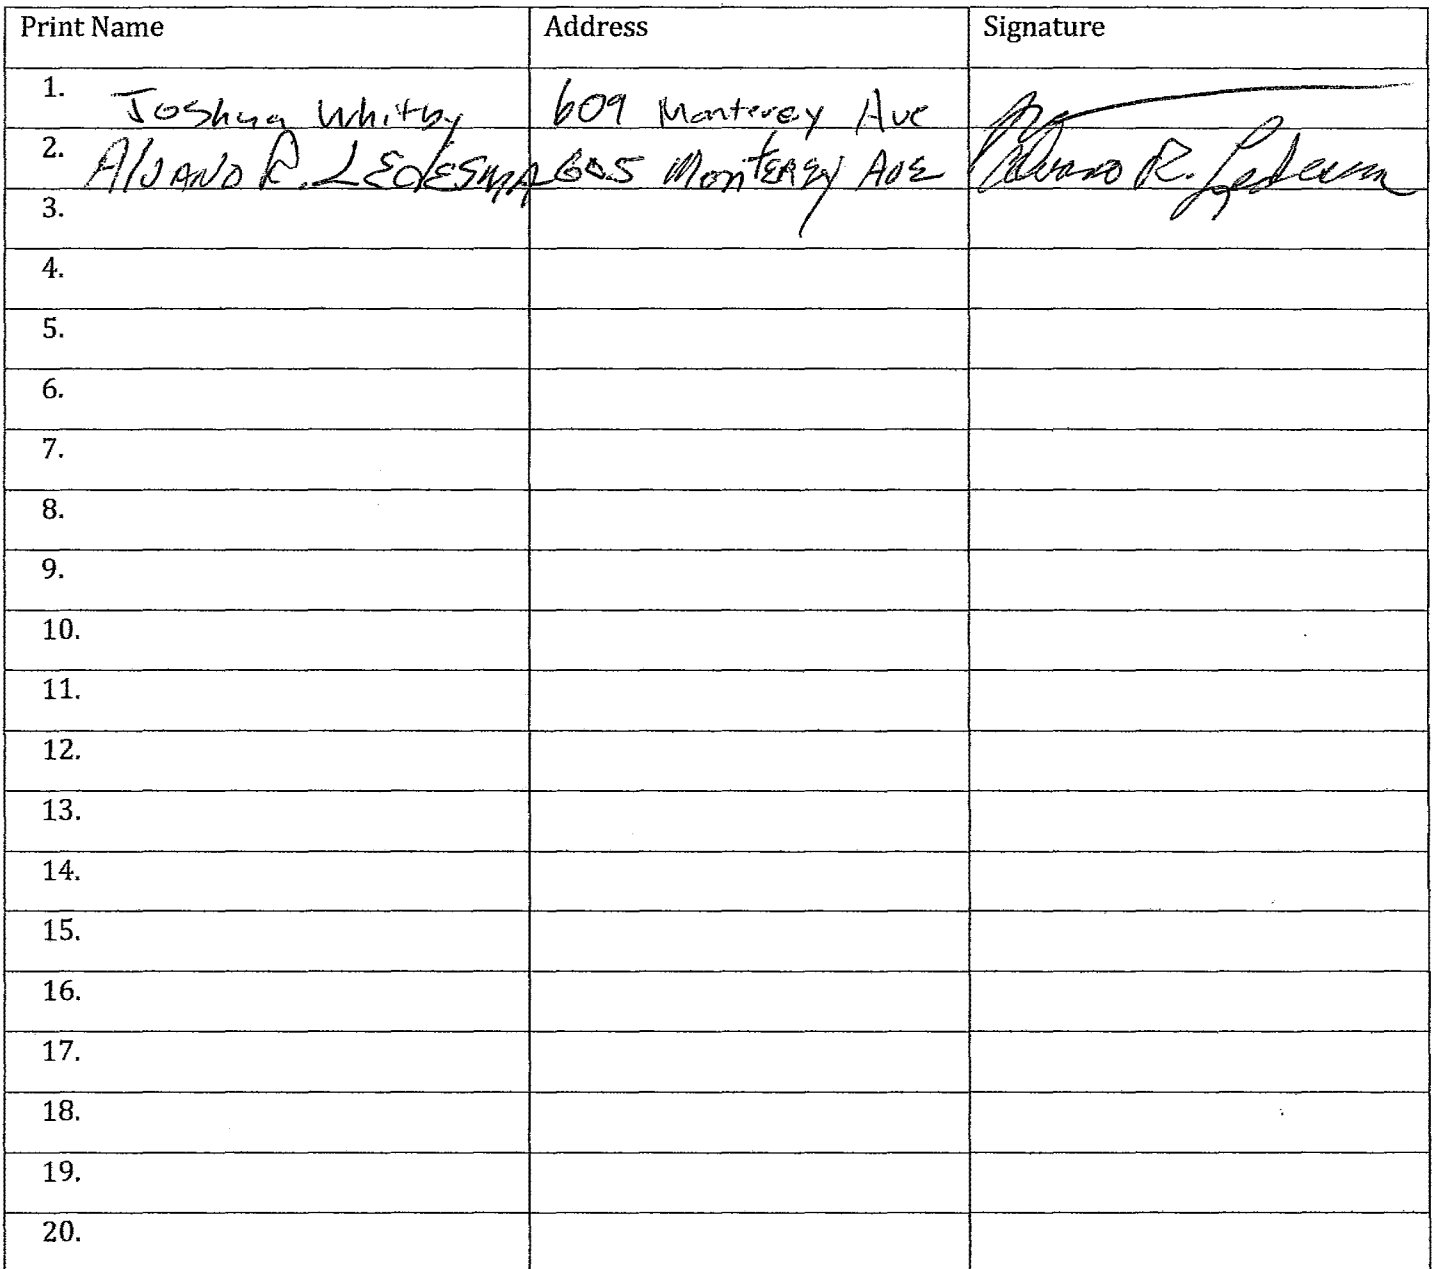 Print Name Address Signature
1. Joshua Whitby 609 Monterey Ave
2. Alvano R. LEDESMA 605 Monterey Ave Alvano R. Ledesma
3.
4.
5.
6.
7.
8.
9.
10.
11.
12.
13.
14.
15.
16.
17.
18.
19.
20.